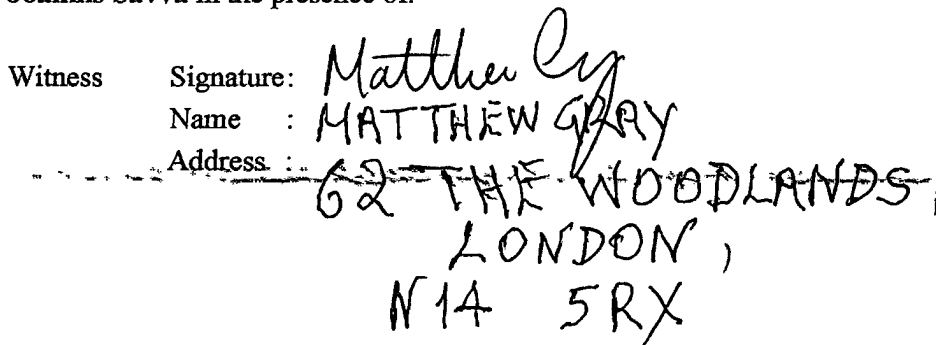 Savva in the presence of:
Witness Signature: Matthew Gray
Name : MATTHEW GRAY
Address : 62 THE WOODLANDS,
LONDON,
N14 5RX